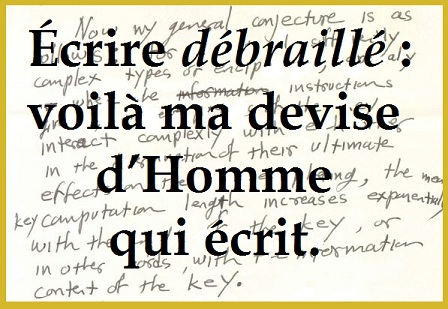 Écrire débraillé :
voilà ma devise
d'Homme
qui écrit.
Now my general conjecture is as
complex types of
the information instructions
interact complexly with
in the of their ultimate
the mean
key computation length increases exponentially
with the key, or
in other with information
content of the key.